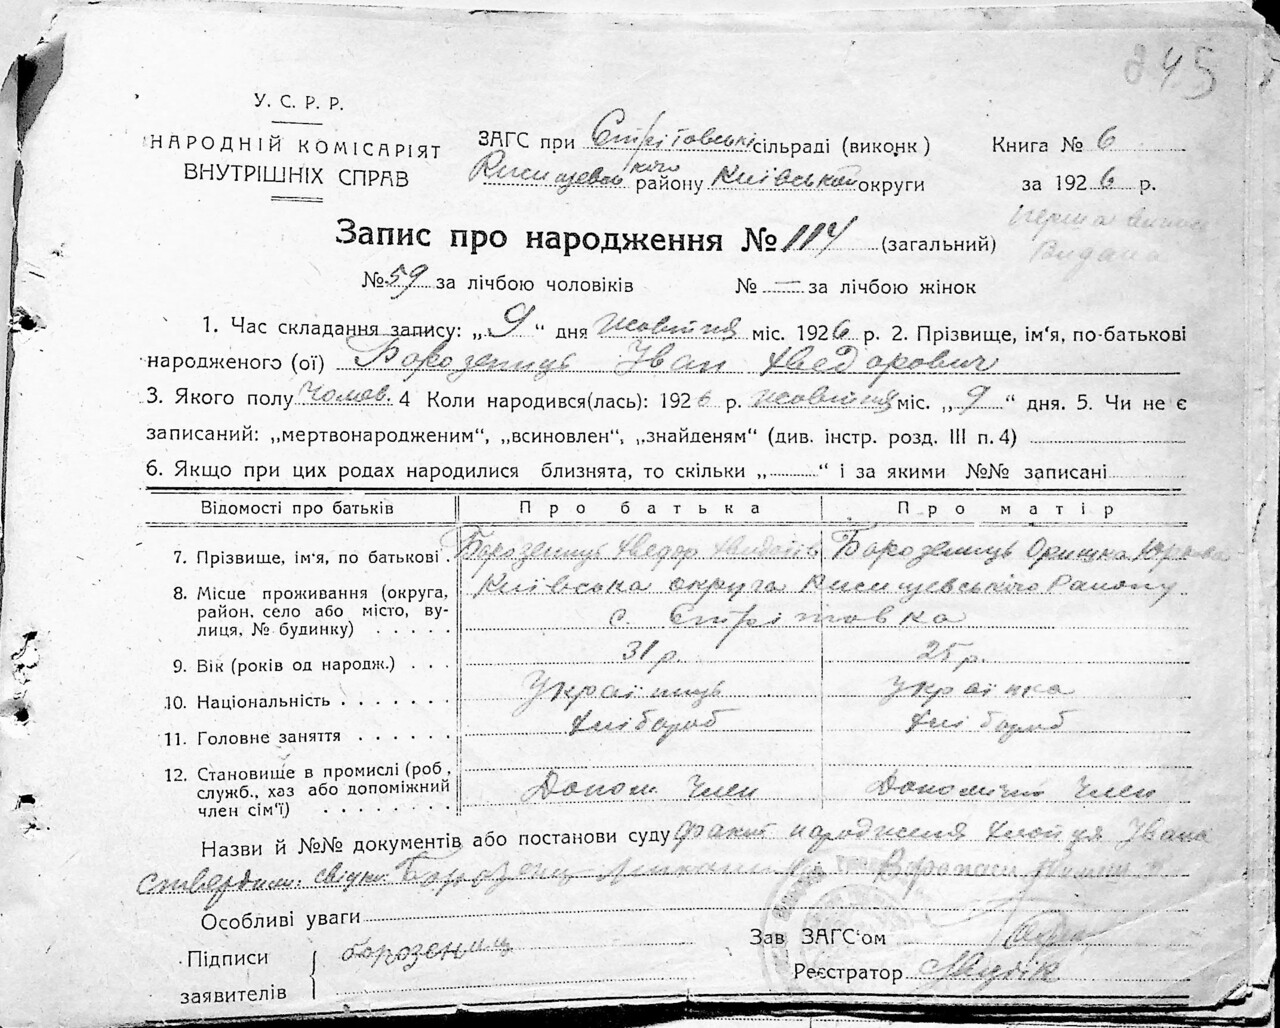 245
У. С. Р. Р.
НАРОДНІЙ КОМІСАРІЯТ
ВНУТРІШНІХ СПРАВ
ЗАГС при Стрітовські сільраді (виконк)
Кисищевського району Київської округи
Книга № 6
за 1926 р.
перша виписка
Видана
Запис про народження № 114 (загальний)
№ 59 за лічбою чоловіків № — за лічбою жінок
1. Час складання запису: „ 9 “ дня жовтня міс. 1926 р. 2. Прізвище, ім‘я, по-батькові
народженого (ої) Борозенець Іван Хведорович
3. Якого полу Чолов. 4 Коли народився(лась): 1926 р. жовтня міс. „ 9 “ дня. 5. Чи не є
записаний: „мертвонародженим“, „всиновлен“, „знайденям“ (див. інстр. розд. III п. 4)
6. Якщо при цих родах народилися близнята, то скільки „ “ і за якими №№ записані
Відомості про батьків Про батька Про матір
7. Прізвище, ім‘я, по батькові Борозенець Хведор Борозенець Оришка
8. Місце проживання (округа, район, село або місто, вулиця, № будинку) Київська округа Кисищевського Району
с. Стрітовка
9. Вік (років од народж.) 31 р. 25 р.
10. Національність Українець Українка
11. Головне заняття Хлібороб Хлібороб
12. Становище в промислі (роб, служб., хаз або допоміжний член сім‘ї) Допом. Член Допоміжн Член
Назви й №№ документів або постанови суду факт народження хлопця Івана
ствердили свідки: Борозенець
Особливі уваги
Підписи
заявителів
борозениц
Зав ЗАГС‘ом
Реєстратор